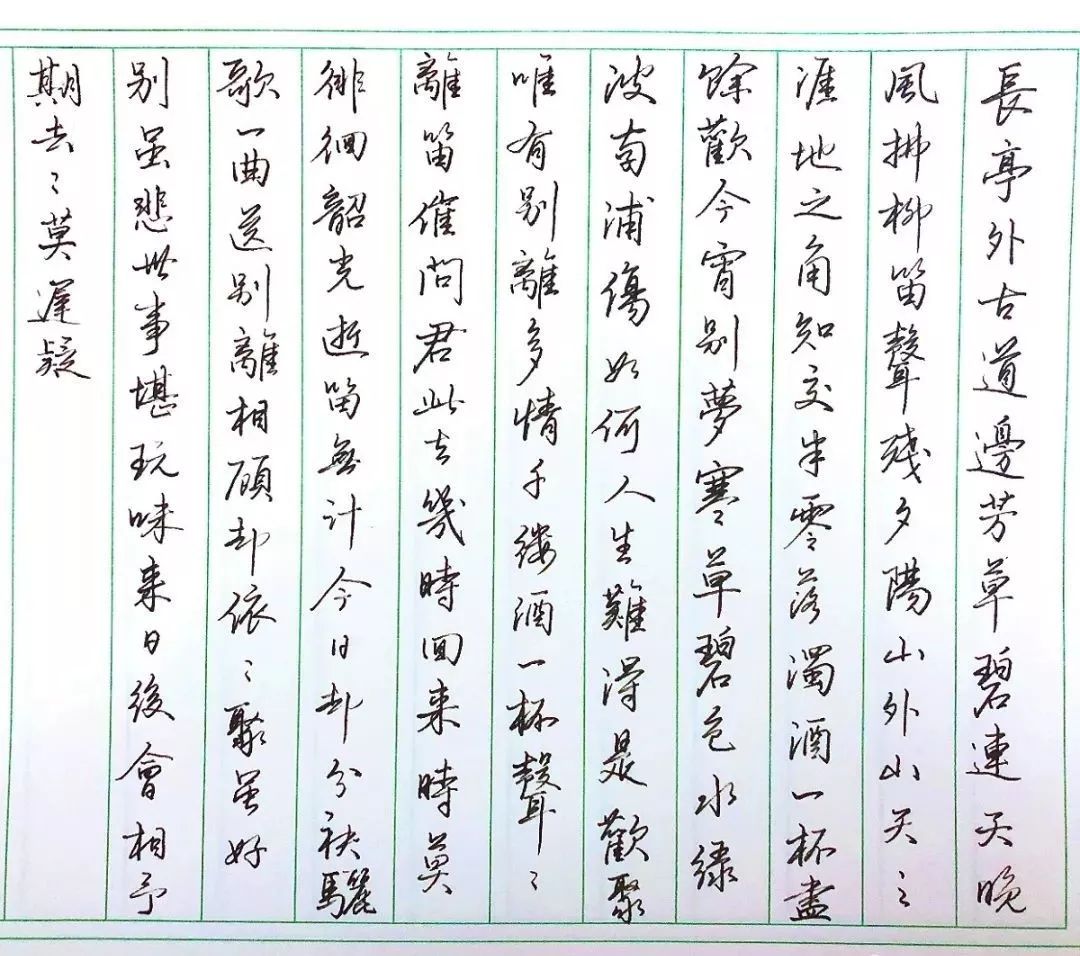 長亭外古道邊芳草碧連天晚
風拂柳笛聲殘夕陽山外山天〻
涯地之角知交半零落濁酒一杯盡
餘歡今宵别夢寒草碧色水緑
波南浦傷如何人生難得是歡聚
唯有别離多情千縷酒一杯聲〻
離笛催問君此去幾時回来時莫
徘徊韶光逝留無計今日却分袂驪
歌一曲送别離相顧却依〻聚虽好
别虽悲世事堪玩味来日後會相予
期去〻莫遲疑